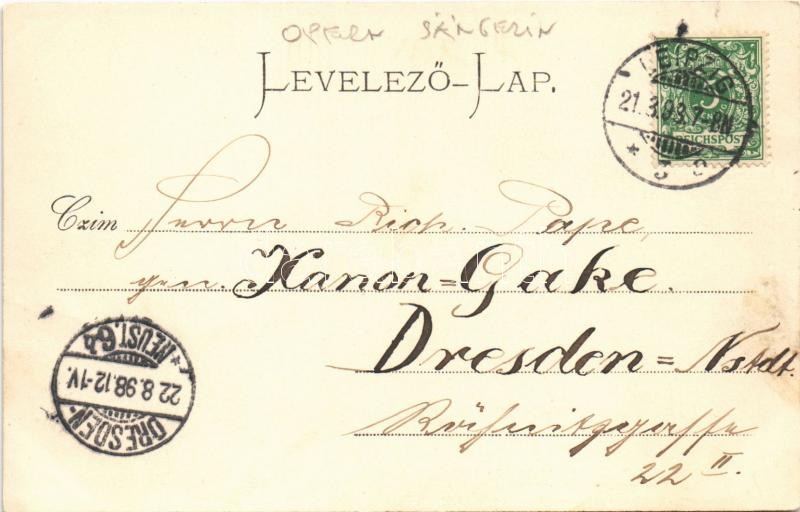 OPERN SÄNGERIN
LEVELEZŐ-LAP.
LEIPZIG
21.3.98.7-8N
* 3 c
5
REICHSPOST
Czim Herrn Rich. Pape,
gen. Kanon=Gake.
Dresden=Nstdt.
Röhnitzgasse
22 II.
*NEUST. 6b
22.8.98.12-1V.
DRESDEN-